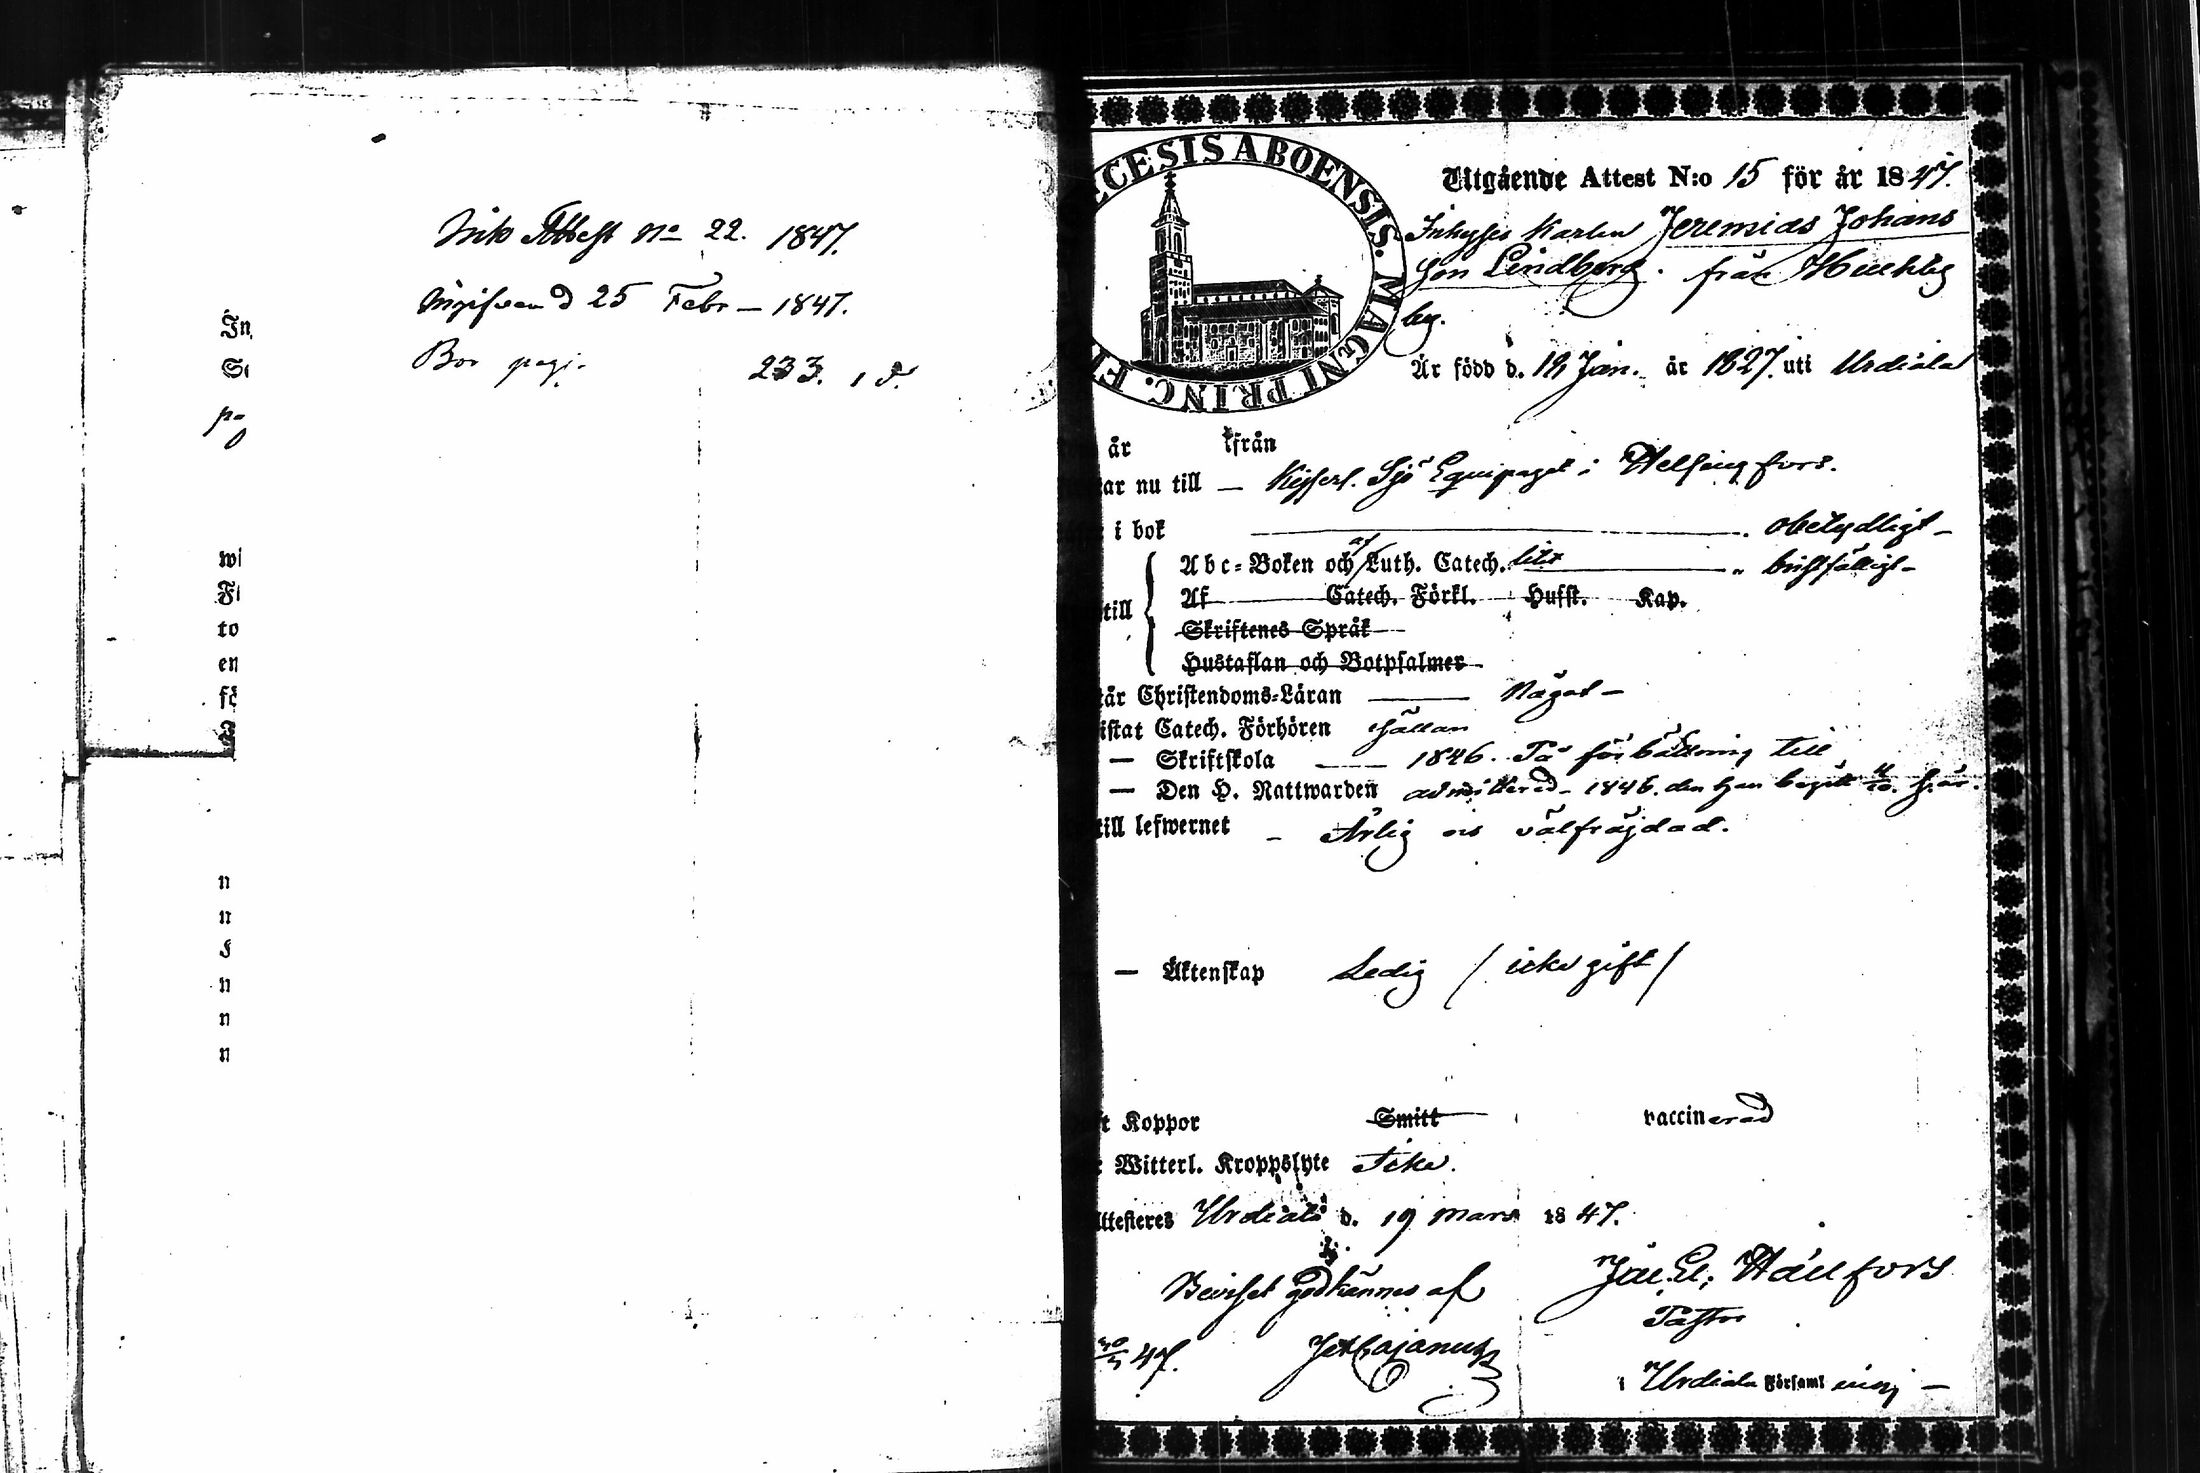 Attest No 22. 1847.
d 25 Febr – 1847.
233.
In
St
wi
Fi
to
en
n
n
n
n
n
CESIS ABOENSIS. MAGNI PRINC. FI
Utgående Attest N:o 15 för år 1847.
Inhyses Karlen Jeremias Johans
son Lindberg. från
by.
Är född d. 12 Jan. år 1827. uti Urdiala
år från
ar nu till — Kejserl. Sjö Equipaget i Helsingfors.
i bok obetydligt –
Abc-Boken och af Luth. Catech. litet bristfälligt –
till Af Catech. Förkl. Husst. Kap.
Skriftenes Språk
Hustaflan och Botpsalmer
tår Christendoms-Läran något –
istat Catech. Förhören sällan
— Skriftskola 1846. På förbättring till
— Den H. Nattwarden admitterad – 1846. den han begått
till lefwernet – Ärlig och välfräjdad.
— Äktenskap Ledig / icke gift /
t Koppor Smitt vaccinerad
Witterl. Kroppslyte Icke.
Attesteres Urdiala d. 19 Mars 1847.
Beviset godkännes af
47. Cajanus
Hällfors
Pastor
i Urdiala Församling –